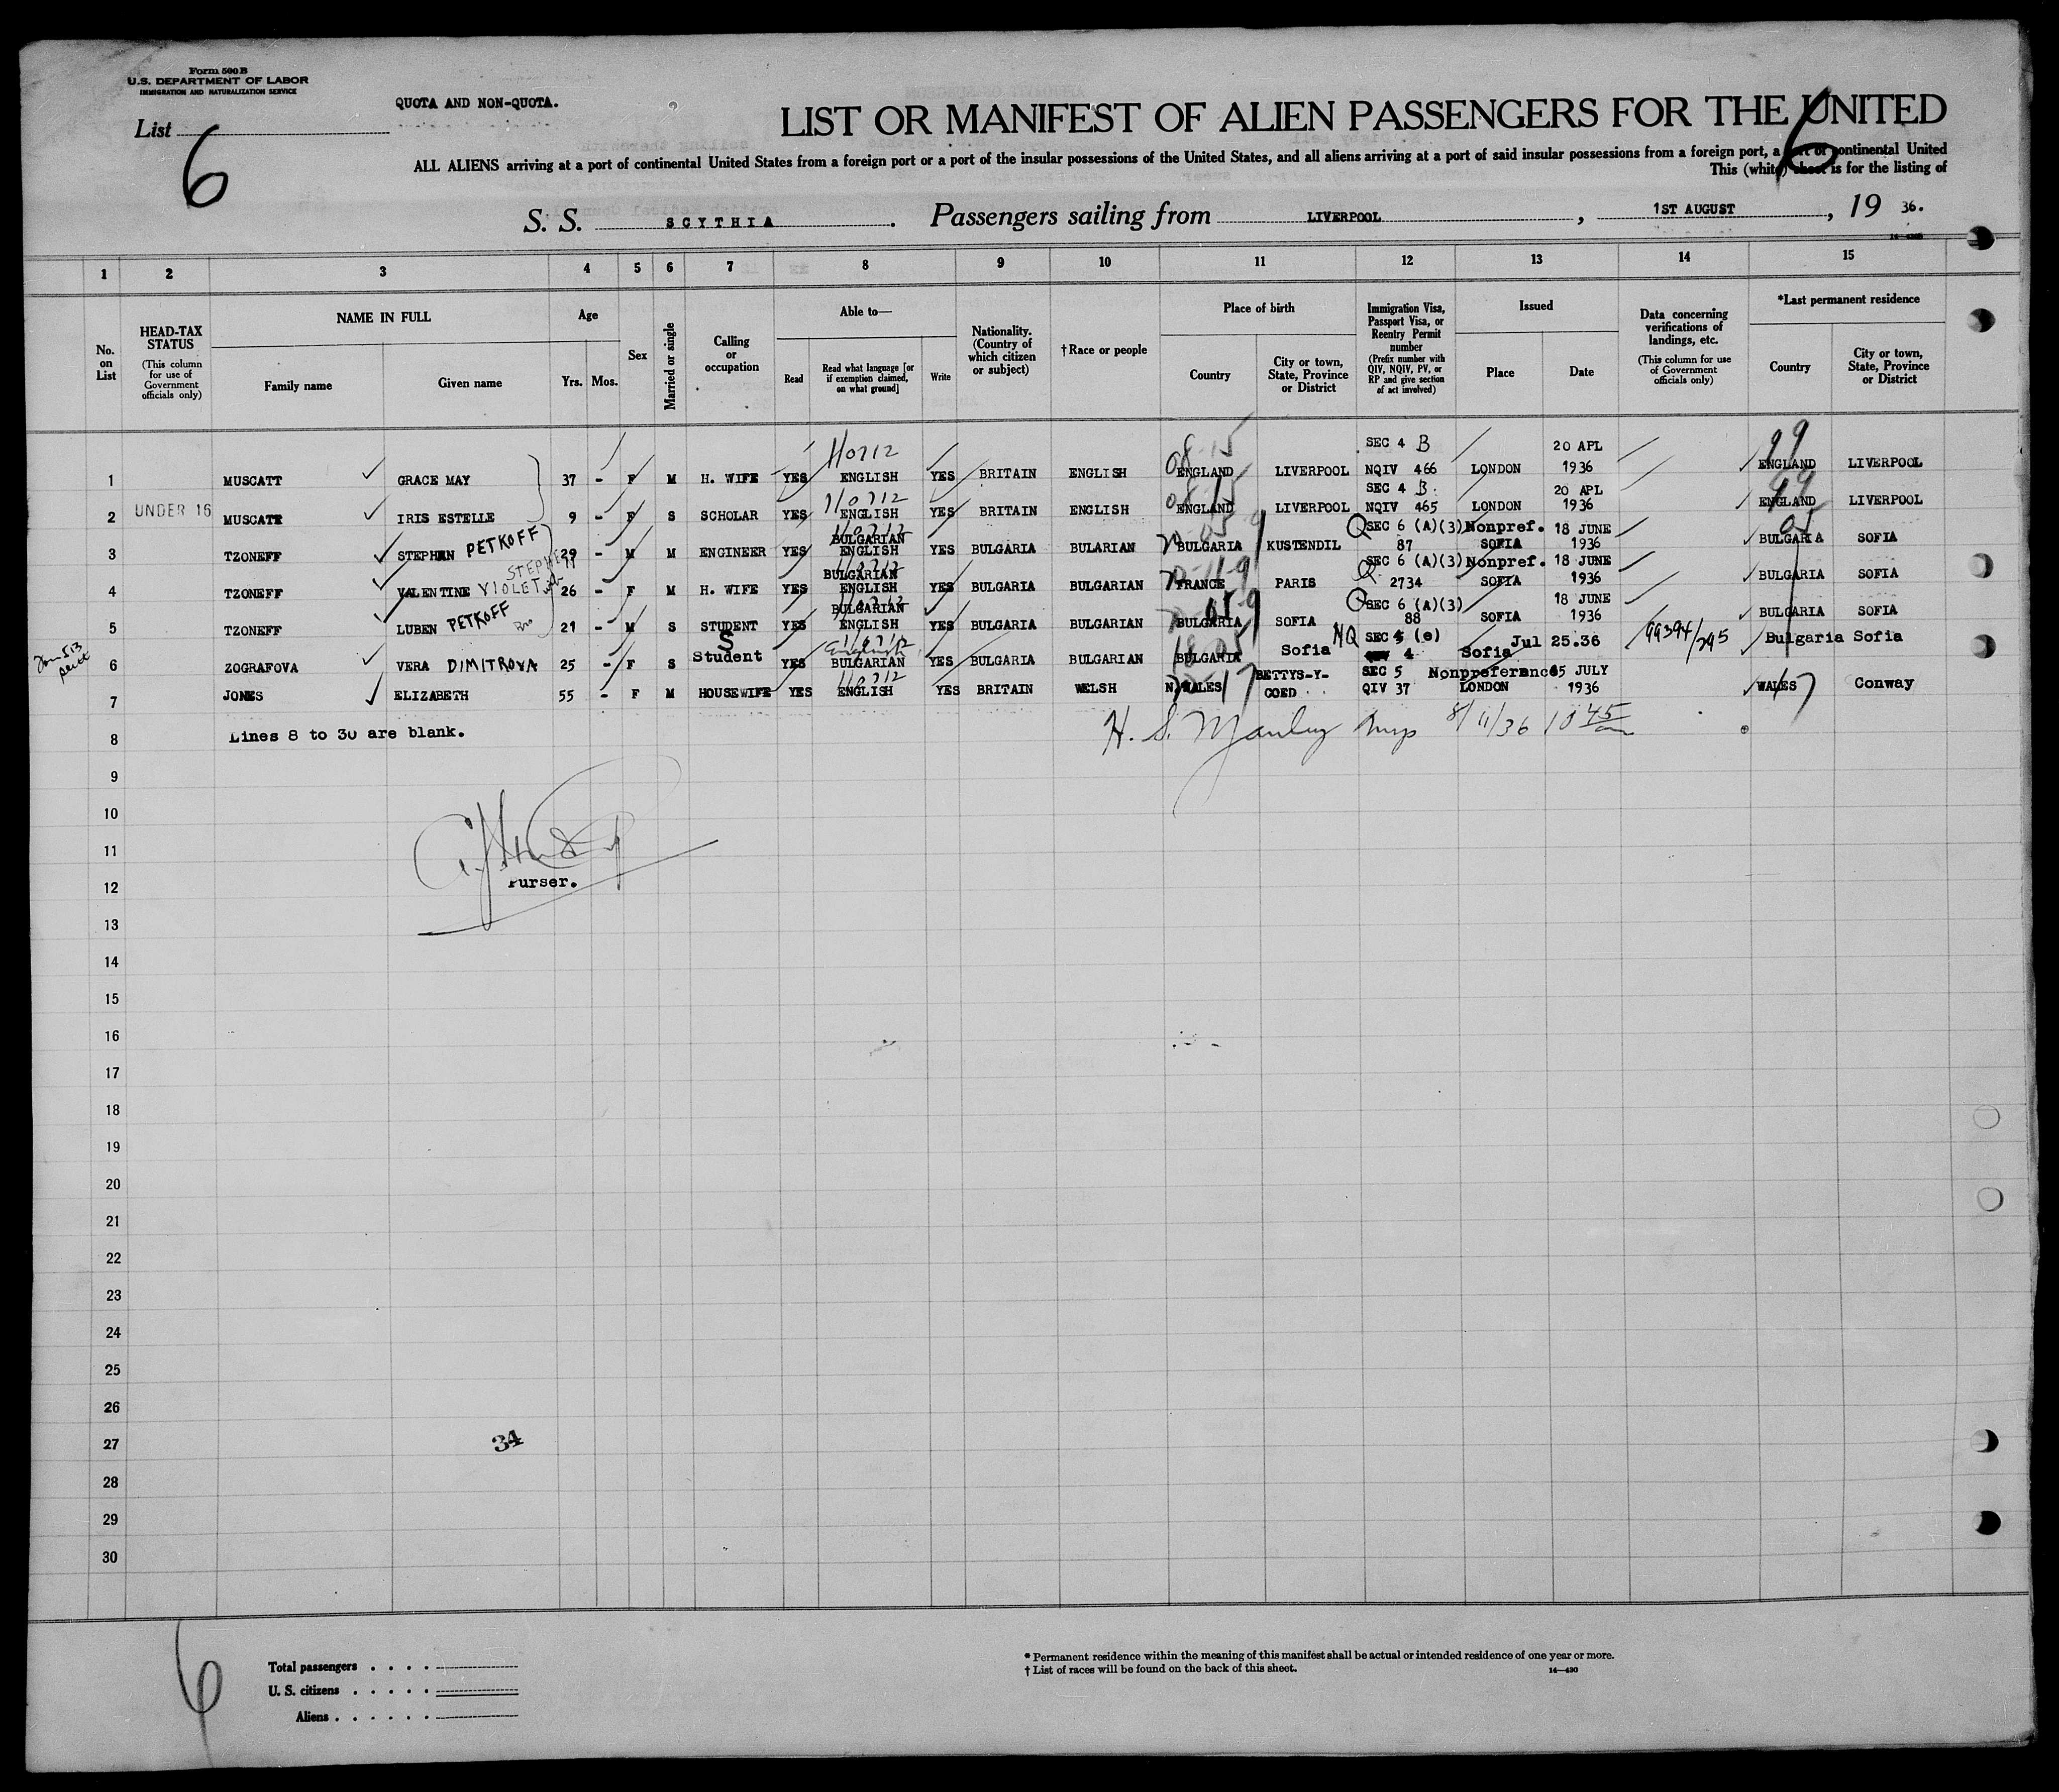 Form 500 B
U.S. DEPARTMENT OF LABOR
IMMIGRATION AND NATURALIZATION SERVICE
QUOTA AND NON-QUOTA.
List
6
LIST OR MANIFEST OF ALIEN PASSENGERS FOR THE UNITED
6
ALL ALIENS arriving at a port of continental United States from a foreign port or a port of the insular possessions of the United States, and all aliens arriving at a port of said insular possessions from a foreign port, a port of continental United
This (white) sheet is for the listing of
S. S. SCYTHIA. Passengers sailing from LIVERPOOL, 1ST AUGUST, 19 36.
1 2 3 4 5 6 7 8 9 10 11 12 13 14 15
No. on List
HEAD-TAX STATUS (This column for use of Government officials only)
NAME IN FULL Family name Given name
Age Yrs. Mos.
Sex
Married or single
Calling or occupation
Able to— Read Read what language [or if exemption claimed, on what ground] Write
Nationality. (Country of which citizen or subject)
†Race or people
Place of birth Country City or town, State, Province or District
Immigration Visa, Passport Visa, or Reentry Permit number (Prefix number with QIV, NQIV, PV, or RP and give section of act involved)
Issued Place Date
Data concerning verifications of landings, etc. (This column for use of Government officials only)
*Last permanent residence Country City or town, State, Province or District
110712 08-15 SEC 4 B 20 APL 99
1 MUSCATT GRACE MAY 37 - F M H. WIFE YES ENGLISH YES BRITAIN ENGLISH ENGLAND LIVERPOOL NQIV 466 LONDON 1936 ENGLAND LIVERPOOL
110712 08-15 SEC 4 B. 20 APL 99
2 UNDER 16 MUSCATT IRIS ESTELLE 9 - F S SCHOLAR YES ENGLISH YES BRITAIN ENGLISH ENGLAND LIVERPOOL NQIV 465 LONDON 1936 ENGLAND LIVERPOOL
110712 BULGARIAN Q SEC 6 (A)(3) Nonpref. 18 JUNE 05
3 TZONEFF STEPHAN PETKOFF 29 - M M ENGINEER YES ENGLISH YES BULGARIA BULARIAN BULGARIA KUSTENDIL 87 SOFIA 1936 BULGARIA SOFIA
BULGARIAN Q SEC 6 (A)(3) Nonpref. 18 JUNE
4 TZONEFF VALENTINE VIOLETA 26 - F M H. WIFE YES ENGLISH YES BULGARIA BULGARIAN FRANCE PARIS 2734 SOFIA 1936 BULGARIA SOFIA
110712 BULGARIAN 05-9 Q SEC 6 (A)(3) 18 JUNE
5 TZONEFF LUBEN PETKOFF 21 - M S STUDENT YES ENGLISH YES BULGARIA BULGARIAN BULGARIA SOFIA 88 SOFIA 1936 BULGARIA SOFIA
S 110712 English 18-05 NQ SEC 4 (e) 99394/295
6 ZOGRAFOVA VERA DIMITROVA 25 - F S Student YES BULGARIAN YES BULGARIA BULGARIAN BULGARIA Sofia 4 Sofia Jul 25.36 Bulgaria Sofia
110712 BETTYS-Y- SEC 5 Nonpreference 15 JULY
7 JONES ELIZABETH 55 - F M HOUSEWIFE YES ENGLISH YES BRITAIN WELSH N WALES COED QIV 37 LONDON 1936 WALES Conway
8 Lines 8 to 30 are blank. H. S. Manley Insp 8/11/36 10 45
9
10
11
12 Purser.
13
14
15
16
17
18
19
20
21
22
23
24
25
26
27 34
28
29
30
6
Total passengers
U. S. citizens
Aliens
* Permanent residence within the meaning of this manifest shall be actual or intended residence of one year or more.
† List of races will be found on the back of this sheet. 14—430